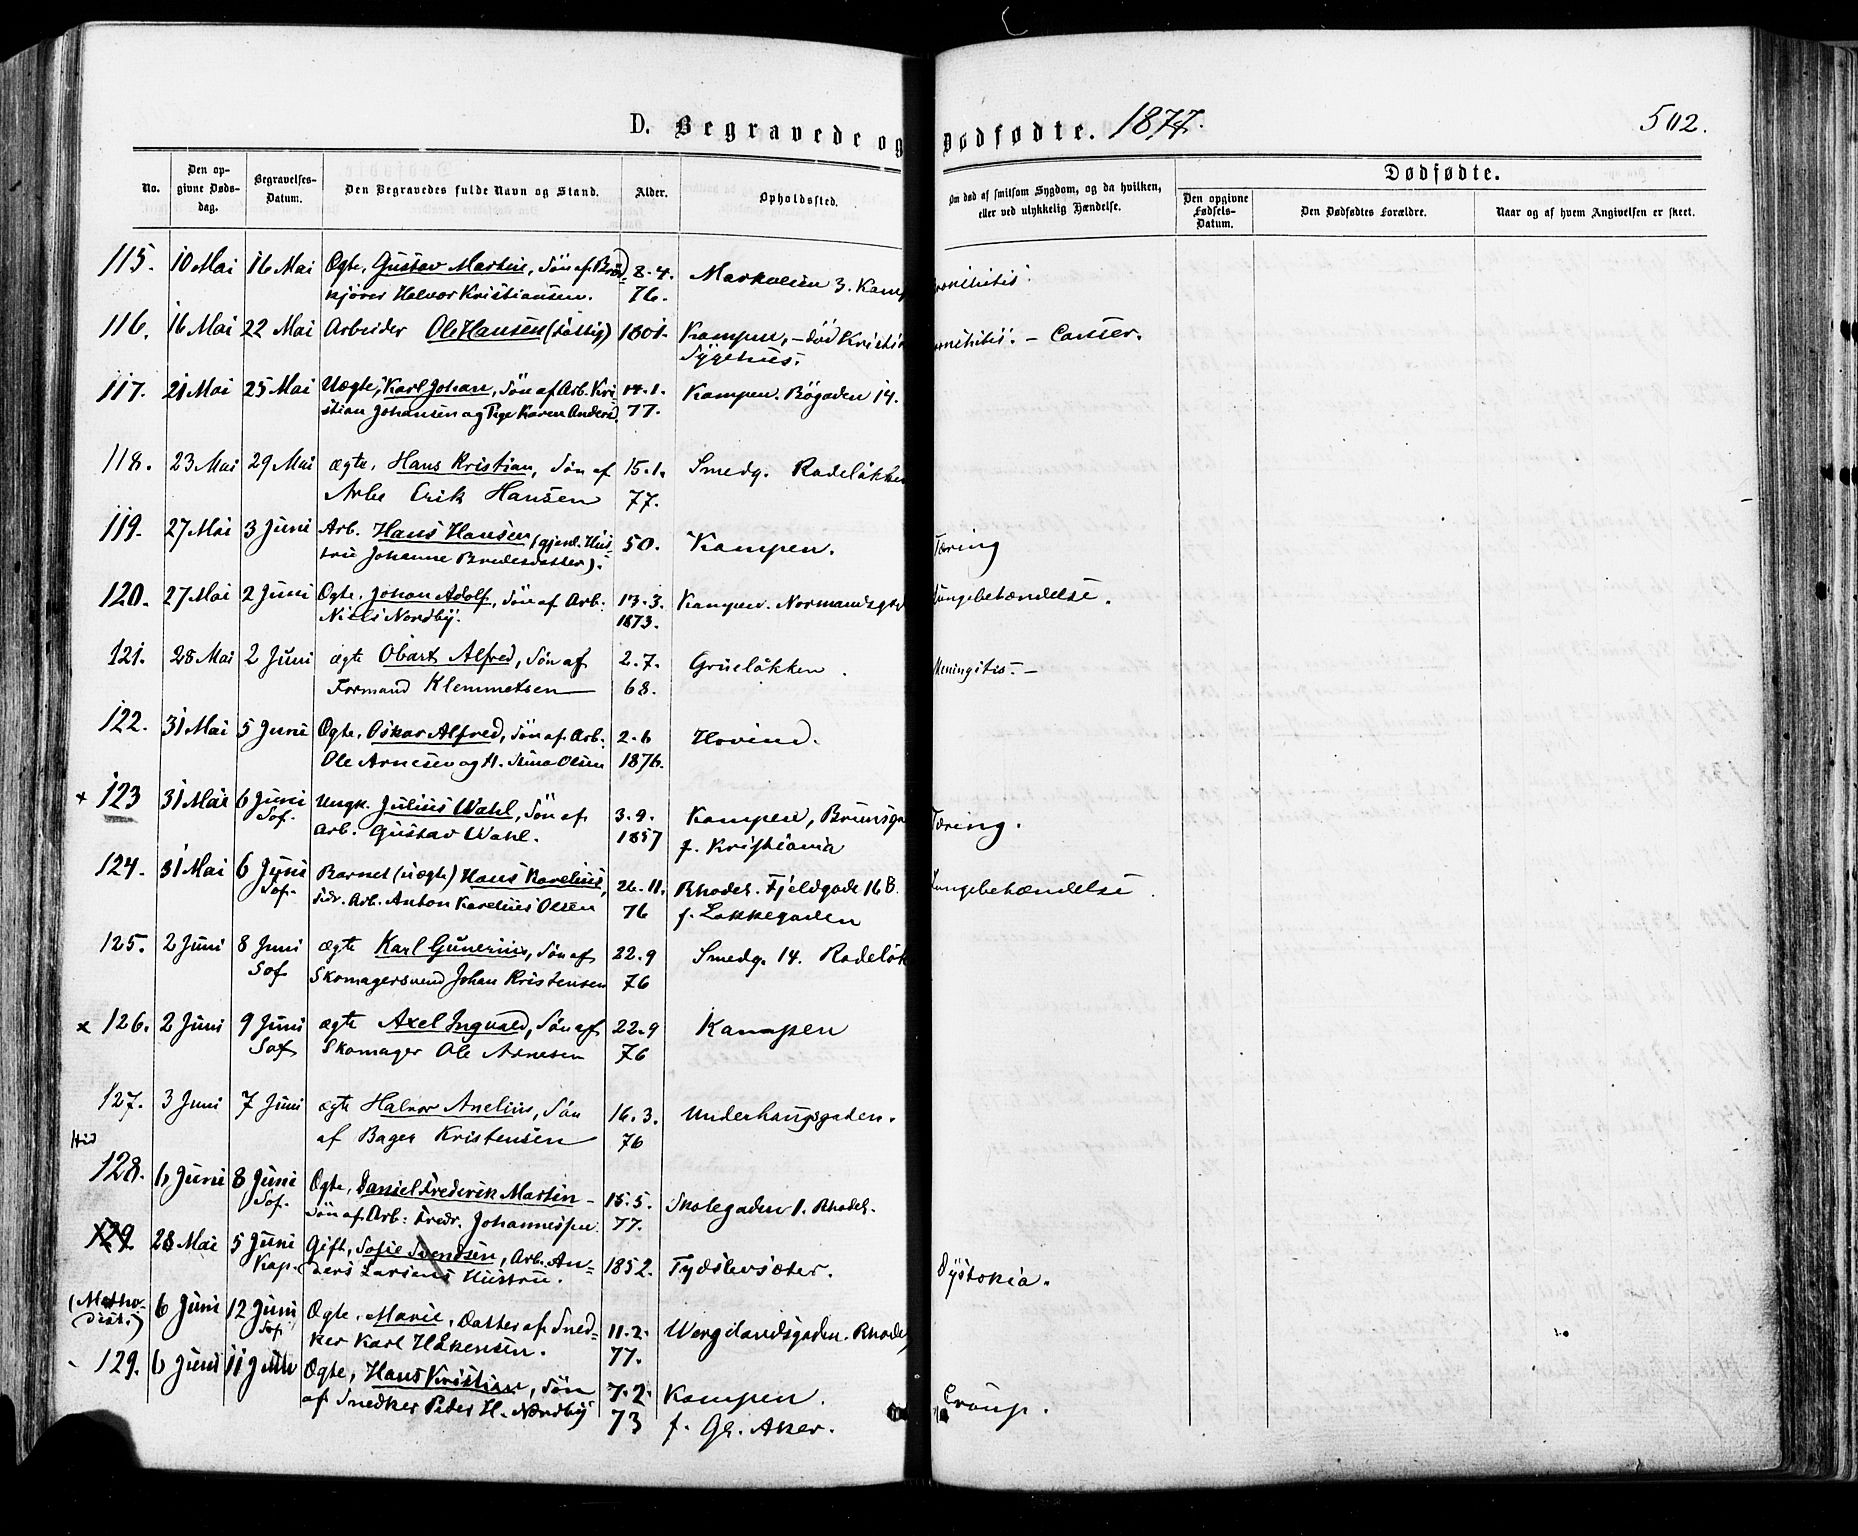 D. Begravede og Dødfødte. 1877. 502.
No. | Den opgivne Dødsdag. | Begravelses-Datum. | Den Begravedes fulde Navn og Stand. | Alder. | Opholdssted. | Om død af smitsom Sygdom, og da hvilken, eller ved ulykkelig Hændelse. | Dødfødte. | Den opgivne Fødsels-Datum. | Den Dødfødtes Forældre. | Naar og af hvem Angivelsen er skeet.
115. 10 Mai 16 Mai Ægte, Gustav Martin, Søn af Brød- 8.4. Markveien 3. Kamp
kjører Halvor Kristiansen. 76.
116. 16 Mai 22 Mai Arbeider Ole Hansen (fattig) 1801. Kampen, – død Kristia – Cancer.
Sygehus.
117. 21 Mai 25 Mai Uægte, Karl Johan, Søn af Arb. Kri 14.1. Kampen. Bögaden 14.
stian Johansen og Pige Karen Anders. 77.
118. 23 Mai 29 Mai ægte, Hans Kristian, Søn af 15.1. Smedg. Rodeløkken
Arbe Erik Hansen 77.
119. 27 Mai 3 Juni Arb. Hans Hansen (gjenl. Hus- 50. Kampen. Tæring
tru Johanne Bredesdatter).
120. 27 Mai 2 Juni Ægte, Johan Adolf, Søn af Arb. 13.3. Kampen. Normandsgad Lungebetændelse.
Niels Nordby. 1873.
121. 28 Mai 2 Juni ægte Obart Alfred, Søn af 2.7. Grüneløkken. Meningitis. –
Formand Klemmetsen 68.
122. 31 Mai 5 Juni Ægte, Oskar Alfred, Søn af Arb. 2.6 Hovind.
Ole Arnesen og H. Stina Olsen 1876.
× 123 31 Mai 6 Juni Ungk. Julius Wahl, Søn af 3.9. Kampen, Brunsga Tæring.
Sof. Arb. Gustav Wahl. 1857 f. Kristiania
124. 31 Mai 6 Juni Barnet (uægte) Hans Karelius, 26.11. Rhodel. Fjeldgade 16 B. Lungebetændelse.
Sof. Arb. Anton Karelius Olsen 76 f. Lakkegaden
125. 2 Juni 8 Juni ægte Karl Gunerius, Søn af 22.9 Smedg. 14. Rodeløk
Sof Skomagersvend Johan Kristensen 76
× 126. 2 Juni 9 Juni ægte Axel Ingvald, Søn af 22.9 Kampen
Sof Skomager Ole Arnesen 76
127. 3 Juni 7 Juni ægte Halvor Anelius, Søn 16.3. Underhaugsgaden.
af Bager Kristensen 76
128. 6 Juni 8 Juni Ægte, Daniel Frederik Martin – 15.5. Skolegaden 1. Rhodel.
Sof. Søn af Arb. Fredr. Johannessen 77.
129. 28 Mai 5 Juni Gift, Sofie Svendsen, Arb. An- 1852. Tydslevsæter. Dystokia.
Kap. ders Larsens Hustru.
(Metho- 6 Juni 12 Juni Ægte, Marie, Datter af Sned- 11.2. Wergelandsgaden. Rhodel
dist.) Sof. ker Karl Håkensen. 77.
129. 6 Juni 11 Juni Ægte, Hans Kristian, Søn 7.2. Kampen. Croup.
af Snedker Peter H. Nordby 73 f. Gl. Aker.